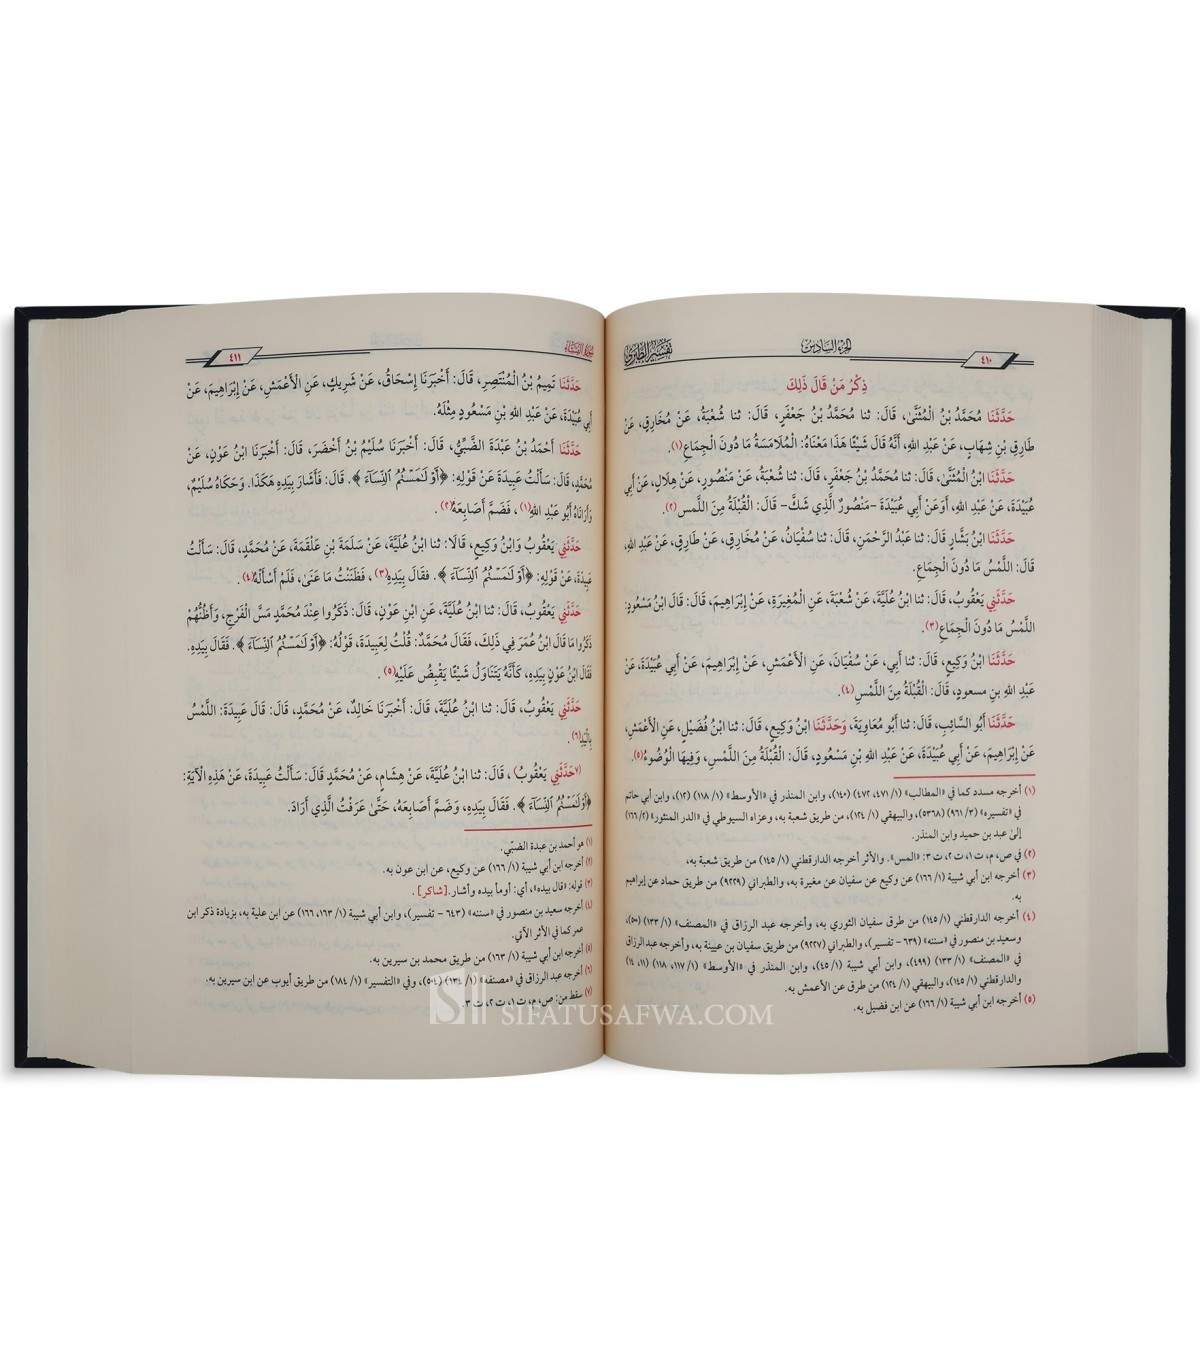 ٤١٠
الجزء السادس
تفسير الطبري
ذِكْرُ مَنْ قَالَ ذَلِكَ
حَدَّثَنَا مُحَمَّدُ بْنُ الْمُثَنَّى، قَالَ: ثنا مُحَمَّدُ بْنُ جَعْفَرٍ، قَالَ: ثنا شُعْبَةُ، عَنْ مُخَارِقٍ، عَنْ
طَارِقِ بْنِ شِهَابٍ، عَنْ عَبْدِ اللهِ، أَنَّهُ قَالَ شَيْئًا هَذَا مَعْنَاهُ: الْمُلَامَسَةُ مَا دُونَ الْجِمَاعِ(١).
حَدَّثَنَا ابْنُ الْمُثَنَّى، قَالَ: ثنا مُحَمَّدُ بْنُ جَعْفَرٍ، قَالَ: ثنا شُعْبَةُ، عَنْ مَنْصُورٍ، عَنْ هِلَالٍ، عَنْ أَبِي
عُبَيْدَةَ، عَنْ عَبْدِ اللهِ، أَوَعَنْ أَبِي عُبَيْدَةَ -مَنْصُورٌ الَّذِي شَكَّ- قَالَ: الْقُبْلَةُ مِنَ اللَّمسِ(٢).
حَدَّثَنَا ابْنُ بَشَّارٍ قَالَ: ثنا عَبْدُ الرَّحْمَنِ، قَالَ: ثنا سُفْيَانُ، عَنْ مُخَارِقٍ، عَنْ طَارِقٍ، عَنْ عَبْدِ اللهِ،
قَالَ: اللَّمْسُ مَا دُونَ الْجِمَاعِ.
حَدَّثَنِي يَعْقُوبُ، قَالَ: ثنا ابْنُ عُلَيَّةَ، عَنْ شُعْبَةَ، عَنِ الْمُغِيرَةِ، عَنْ إِبْرَاهِيمَ، قَالَ: قَالَ ابْنُ مَسْعُودٍ:
اللَّمْسُ مَا دُونَ الْجِمَاعِ(٣).
حَدَّثَنَا ابْنُ وَكِيعٍ، قَالَ: ثنا أَبِي، عَنْ سُفْيَانَ، عَنِ الْأَعْمَشِ، عَنْ إِبْرَاهِيمَ، عَنْ أَبِي عُبَيْدَةَ، عَنْ
عَبْدِ اللهِ بنِ مسعودٍ، قَالَ: الْقُبْلَةُ مِنَ اللَّمْسِ(٤).
حَدَّثَنَا أَبُو السَّائِبِ، قَالَ: ثنا أَبُو مُعَاوِيَةَ، وَحَدَّثَنَا ابْنُ وَكِيعٍ، قَالَ: ثنا ابْنُ فُضَيْلٍ، عَنِ الْأَعْمَشِ،
عَنْ إِبْرَاهِيمَ، عَنْ أَبِي عُبَيْدَةَ، عَنْ عَبْدِ اللهِ بْنِ مَسْعُودٍ، قَالَ: الْقُبْلَةُ مِنَ اللَّمْسِ، وَفِيهَا الْوُضُوءُ(٥).
(١) أخرجه مسدد كما في «المطالب» (١/ ٤٧١، ٤٧٢) (١٤٠)، وابن المنذر في «الأوسط» (١/ ١١٨) (١٢)، وابن أبي حاتم
في «تفسيره» (٣/ ٩٦١) (٥٣٦٨)، والبيهقي (١/ ١٢٤)، من طريق شعبة به، وعزاه السيوطي في «الدر المنثور» (٢/ ١٦٦)
إلىٰ عبد بن حميد وابن المنذر.
(٢) في ص، م، ت ١، ت ٢، ت ٣: «المس». والأثر أخرجه الدارقطني (١/ ١٤٥) من طريق شعبة به،
(٣) أخرجه ابن أبي شيبة (١/ ١٦٦) عن وكيع عن سفيان عن مغيرة به، والطبراني (٩٢٢٩) من طريق حماد عن إبراهيم
به.
(٤) أخرجه الدارقطني (١/ ١٤٥) من طرق سفيان الثوري به، وأخرجه عبد الرزاق في «المصنف» (١/ ١٣٣) (٥٠٠)،
وسعيد بن منصور في «سننه» (٦٣٩ - تفسير)، والطبراني (٩٢٢٧) من طريق سفيان بن عيينة به، وأخرجه عبد الرزاق
في «المصنف» (١/ ١٣٣) (٤٩٩)، وابن أبي شيبة (١/ ٤٥)، وابن المنذر في «الأوسط» (١/ ١١٧، ١١٨) (١١، ١٤)
والدارقطني (١/ ١٤٥)، والبيهقي (١/ ١٢٤) من طرق عن الأعمش به.
(٥) أخرجه ابن أبي شيبة (١/ ١٦٦) عن ابن فضيل به.
سورة النساء
٤١١
حَدَّثَنَا تَمِيمُ بْنُ الْمُنْتَصِرِ، قَالَ: أَخْبَرَنَا إِسْحَاقُ، عَنْ شَرِيكٍ، عَنِ الْأَعْمَشِ، عَنْ إِبْرَاهِيمَ، عَنْ
أَبِي عُبَيْدَةَ، عَنْ عَبْدِ اللهِ بْنِ مَسْعُودٍ مِثْلَهُ.
حَدَّثَنَا أَحْمَدُ بْنُ عَبْدَةَ الضَّبِّيُّ، قَالَ: أَخْبَرَنَا سُلَيْمُ بْنُ أَخْضَرَ، قَالَ: أَخْبَرَنَا ابْنُ عَوْنٍ، عَنْ
مُحَمَّدٍ، قَالَ: سَأَلْتُ عَبِيدَةَ عَنْ قَوْلِهِ: ﴿أَوۡ لَٰمَسۡتُمُ ٱلنِّسَآءَ﴾. قَالَ: فَأَشَارَ بِيَدِهِ هَكَذَا. وَحَكَاهُ سُلَيْمٌ،
وَأَرَانَاهُ أَبُو عَبْدِ اللهِ(١)، فَضَمَّ أَصَابِعَهُ(٢).
حَدَّثَنِي يَعْقُوبُ وَابْنُ وَكِيعٍ، قَالَا: ثنا ابْنُ عُلَيَّةَ، عَنْ سَلَمَةَ بْنِ عَلْقَمَةَ، عَنْ مُحَمَّدٍ، قَالَ: سَأَلْتُ
عَبِيدَةَ، عَنْ قَوْلِهِ: ﴿أَوۡ لَٰمَسۡتُمُ ٱلنِّسَآءَ﴾. فقَالَ بِيَدِهِ(٣)، فَظَنَنْتُ مَا عَنَى، فَلَمْ أَسْأَلْهُ(٤).
حَدَّثَنِي يَعْقُوبُ، قَالَ: ثنا ابْنُ عُلَيَّةَ، عَنِ ابْنِ عَوْنٍ، قَالَ: ذَكَرُوا عِنْدَ مُحَمَّدٍ مَسَّ الْفَرْجِ، وَأَظُنُّهُمْ
ذَكَرُوا مَا قَالَ ابْنُ عُمَرَ فِي ذَلِكَ، فَقَالَ مُحَمَّدٌ: قُلْتُ لِعَبِيدَةَ، قَوْلُهُ: ﴿أَوۡ لَٰمَسۡتُمُ ٱلنِّسَآءَ﴾. فَقَالَ بِيَدِهِ.
فَقَالَ ابْنُ عَوْنٍ بِيَدِهِ، كَأَنَّهُ يَتَنَاوَلُ شَيْئًا يَقْبِضُ عَلَيْهِ(٥).
حَدَّثَنِي يَعْقُوبُ، قَالَ: ثنا ابْنُ عُلَيَّةَ، قَالَ: أَخْبَرَنَا خَالِدٌ، عَنْ مُحَمَّدٍ، قَالَ: قَالَ عَبِيدَةُ: اللَّمْسُ
بِالْيَدِ(٦).
(٧)حَدَّثَنِي يَعْقُوبُ)، قَالَ: ثنا ابْنُ عُلَيَّةَ، عَنْ هِشَامٍ، عَنْ مُحَمَّدٍ قَالَ: سَأَلْتُ عَبِيدَةَ، عَنْ هَذِهِ الْآيَةِ:
﴿أَوۡ لَٰمَسۡتُمُ ٱلنِّسَآءَ﴾. فَقَالَ بِيَدِهِ، وَضَمَّ أَصَابِعَهُ، حَتَّىٰ عَرَفْتُ الَّذِي أَرَادَ.
(١) هو أحمد بن عبدة الضبّي.
(٢) أخرجه ابن أبي شيبة (١/ ١٦٦) عن وكيع، عن ابن عون به.
(٣) قوله: «قال بيده»، أي: أومأ بيده وأشار. [شاكر].
(٤) أخرجه سعيد بن منصور في «سننه» (٦٤٣ - تفسير)، وابن أبي شيبة (١/ ١٦٣، ١٦٦) عن ابن علية به، بزيادة ذكر ابن
عمر كما في الأثر الآتي.
(٥) أخرجه ابن أبي شيبة (١/ ١٦٣) من طريق محمد بن سيرين به.
(٦) أخرجه عبد الرزاق في «مصنفه» (١/ ١٣٤) (٥٠٤)، وفي «التفسير» (١/ ١٨٤) من طريق أيوب عن ابن سيرين به.
(٧) سقط من: ص، م، ت ١، ت ٢، ت ٣.
SIFATUSAFWA.COM